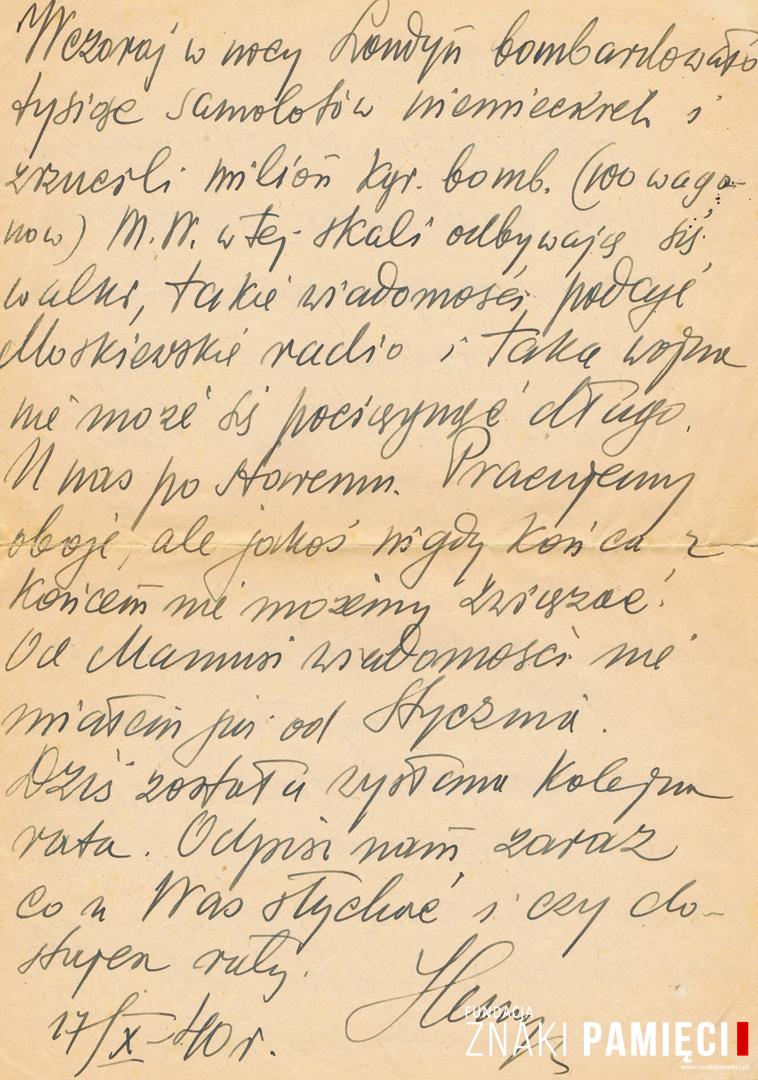 Wczoraj w nocy Londyn bombardowało
tysiąc samolotów niemieckich i
zrzucili milion kgr. bomb. (100 wago-
now) M.W. w tej skali odbywają się
walki, takie wiadomości podaje
Moskiewskie radio i taka wojna
nie może się pociągnąć długo.
U nas po staremu. Pracujemy
oboje, ale jakoś nigdy końca z
końcem nie możemy związać.
Od Mamusi wiadomości nie
miałem już od Stycznia.
Dziś została wysłana kolejna
rata. Odpisz nam zaraz
co u Was słychać i czy do-
stajesz raty.
17/X-40 r.
FUNDACJA
ZNAKI PAMIĘCI
www.znakipamieci.pl